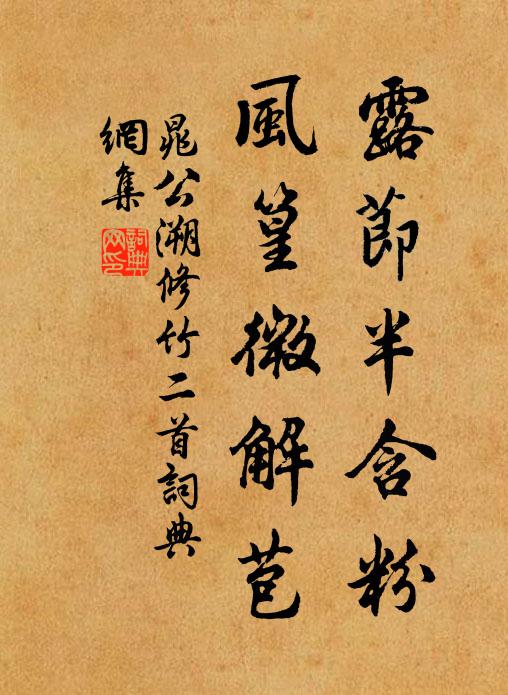 露節半含粉
風篁微解苞
晁公溯修竹二首詞典
網集
詞典網印